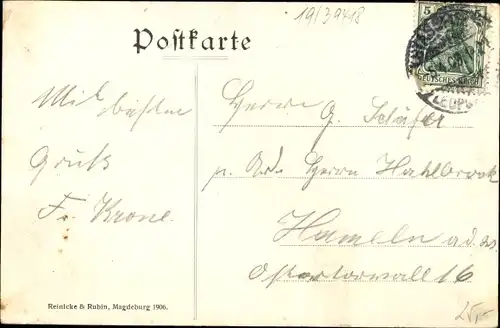 19/39418
Postkarte
5
DEUTSCHES REICH
Mit besten
Gruß
Fr. Krone.
Herrn G. Schäfer
p. Adr. Herrn
Hameln a. d. W.
Ostertorwall 16
Reinicke & Rubin, Magdeburg 1906.
25,-